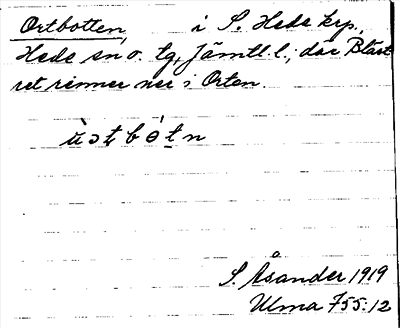 Ortbotten, i S. Heda krp,
Hede sn o. tg, Jämtl. l., där Blåst
ret rinner ner i Orten.
S. Åsander 1919
Ulma 755:12